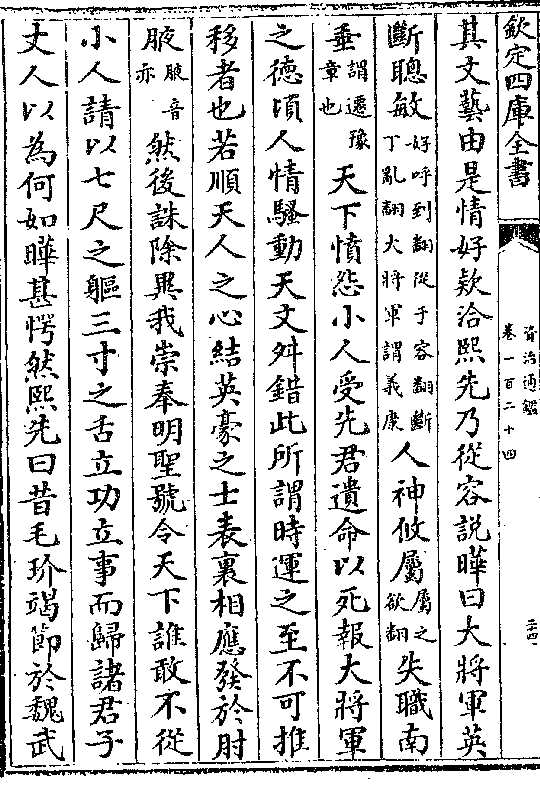 欽定四庫全書
資治通鑑
卷一百二十四
二十四
其文藝由是情好款洽熙先乃從容說曄曰大將軍英
斷聰敏好呼到翻從于容翻斷丁亂翻大將軍謂義康人神攸屬屬之欲翻失職南
垂謂遷豫章也天下憤怨小人受先君遺命以死報大將軍
之德頃人情騷動天文舛錯此所謂時運之至不可推
移者也若順天人之心結英豪之士表裏相應發於肘
腋腋音亦然後誅除異我崇奉明聖號令天下誰敢不從
小人請以七尺之軀三寸之舌立功立事而歸諸君子
丈人以為何如曄甚愕然熙先曰昔毛玠竭節於魏武